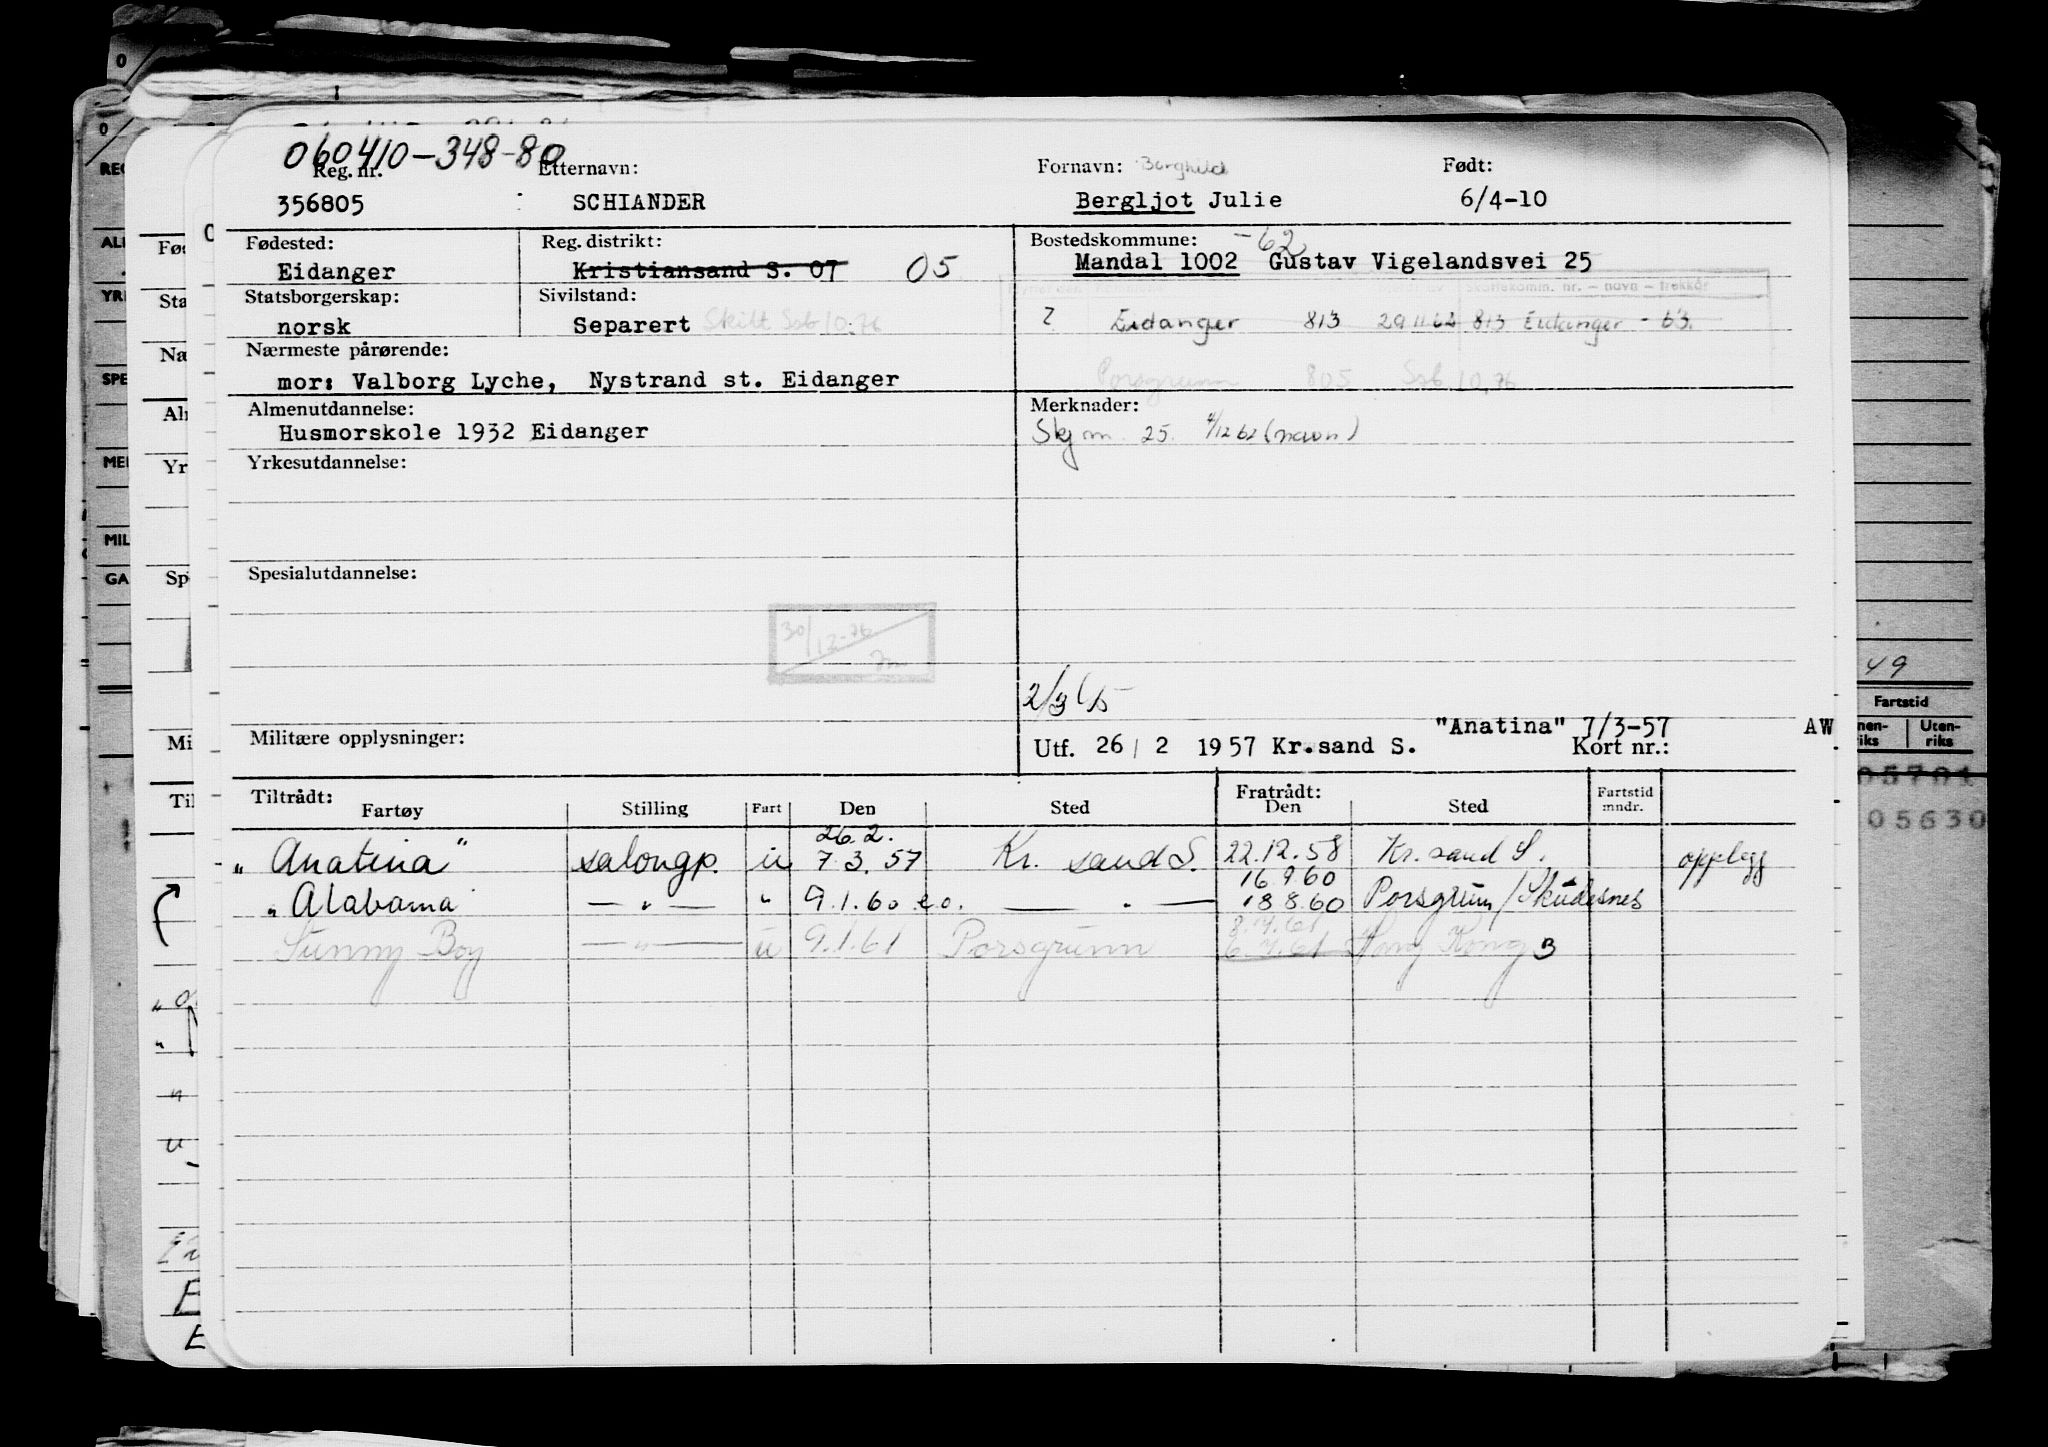 060410-348-80
Reg. nr. Etternavn: Fornavn: Borghild Født:
356805 SCHIANDER Bergljot Julie 6/4-10
Fødested: Reg. distrikt: Bostedskommune: -62
Eidanger Kristiansand S. 07 05 Mandal 1002 Gustav Vigelandsvei 25
Statsborgerskap: Sivilstand: Skattekomm. nr. — navn — trekkår
norsk Separert Skilt Ssb 10.76 Eidanger 813 29 11 62 813 Eidanger - 63.
Nærmeste pårørende:
mor: Valborg Lyche, Nystrand st. Eidanger Porsgrunn 805 Ssb 10.76
Almenutdannelse: Merknader:
Husmorskole 1932 Eidanger Skjm. 25. 4/12 62 (navn)
Yrkesutdannelse:
Spesialutdannelse:
30/12-76
2/3 65
"Anatina" 7/3-57 AW
Militære opplysninger: Utf. 26 / 2 1957 Kr.sand S. Kort nr.:
Tiltrådt: Fratrådt: Fartstid mndr.
Fartøy Stilling Fart Den Sted Den Sted
26.2.
"Anatina" salongp. u 7.3.57 Kr. sand S. 22.12.58 Kr. sand S. opplegg
16.9.60
"Alabama — " — " 9.1.60 e.o. — " — 18 8.60 Porsgrunn/Skudesnes
8.7.61
Sunny Boy — " — u 9.1.61 Porsgrunn 6.7.61 Hong Kong B
49
Fartstid
Uten-
riks
05701
05630